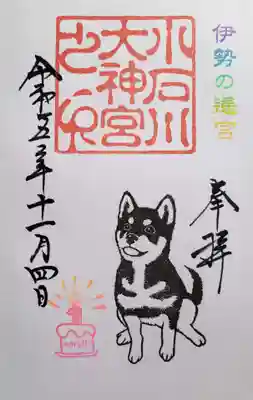 伊勢の遙宮
奉拝
小石川
大神宮
之印
令和五年十一月四日